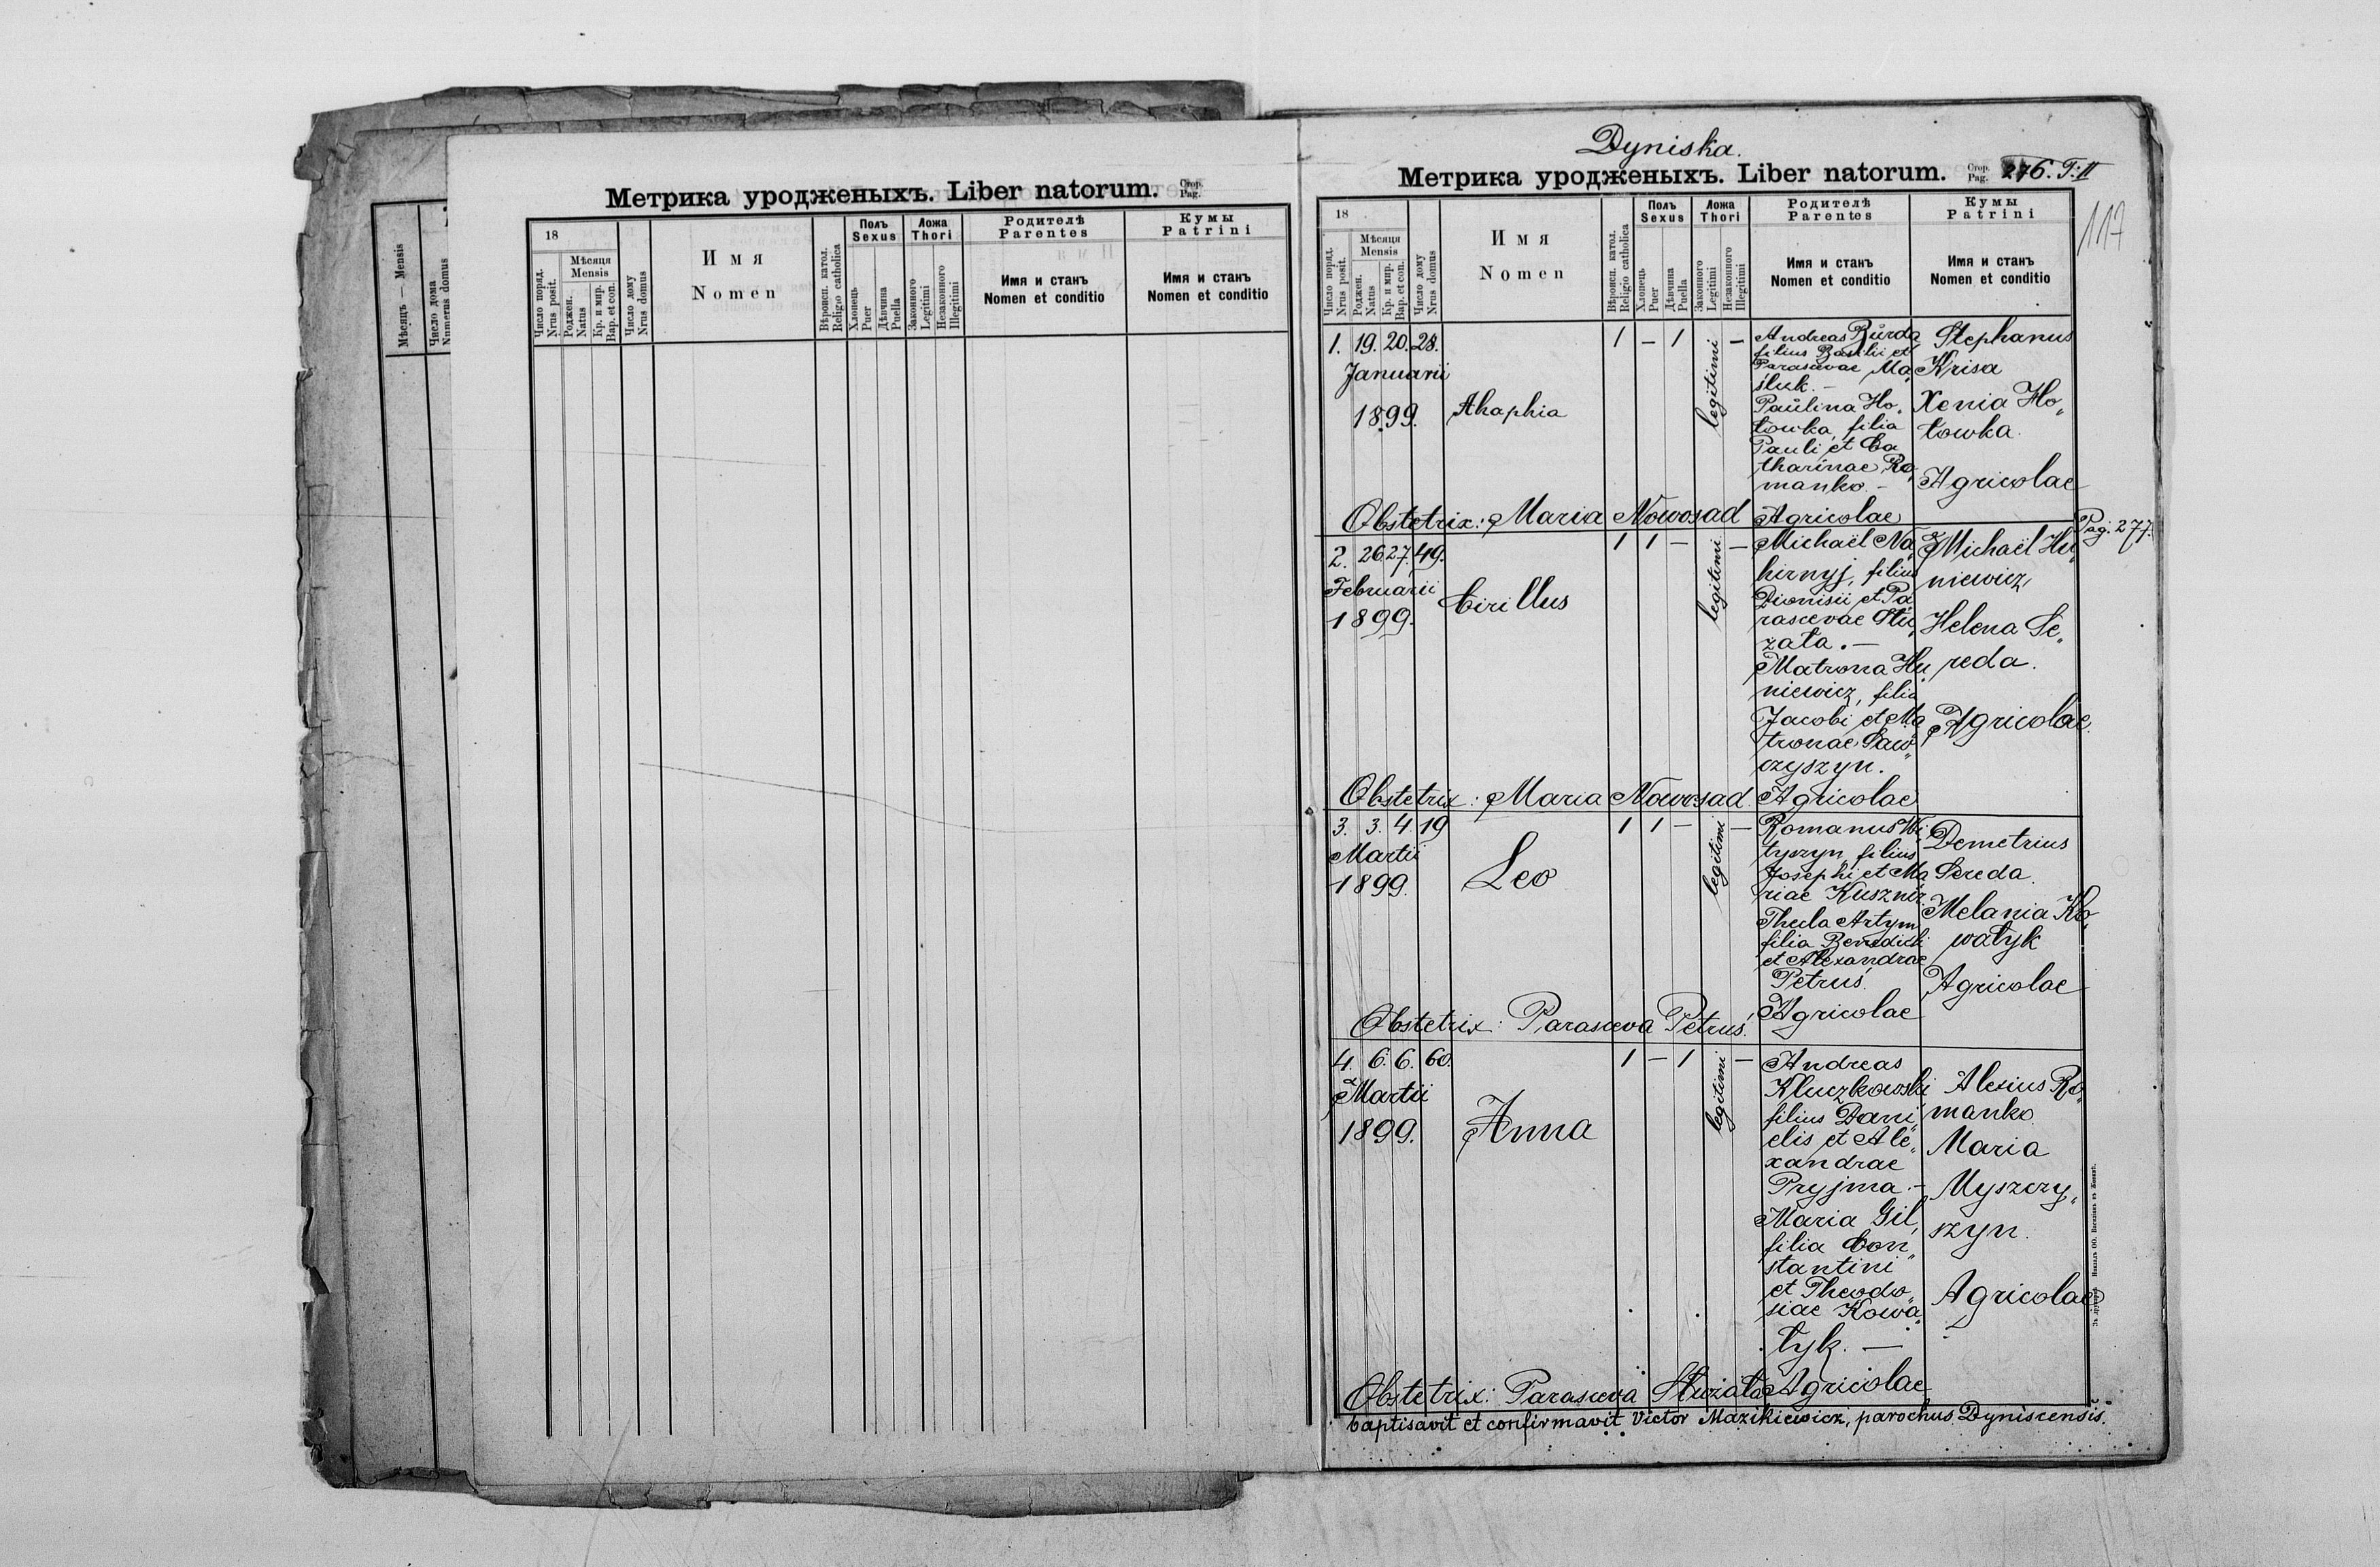 Мѣсяць — Mensis
Число дома
Numerus domus
Метрика уродженыхъ. Liber natorum. Стор. Pag.
18
Мѣсяця
Mensis
Число поряд.
Nrus posit.
Роджен.
Natus
Кр. и мир.
Bap. et con.
Число дому
Nrus domus
Имя
Nomen
Вѣроисп. катол.
Religio catholica
Полъ
Sexus
Хлопець
Puer
Дѣвчина
Puella
Ложа
Thori
Законного
Legitimi
Незаконного
Illegitimi
Родителѣ
Parentes
Имя и станъ
Nomen et conditio
Кумы
Patrini
Имя и станъ
Nomen et conditio
Dyniska.
Метрика уродженыхъ. Liber natorum. Стор. Pag. 276. T: II
117
18
Мѣсяця
Mensis
Число поряд.
Nrus posit.
Роджен.
Natus
Кр. и мир.
Bap. et con.
Число дому
Nrus domus
Имя
Nomen
Вѣроисп. катол.
Religio catholica
Полъ
Sexus
Хлопець
Puer
Дѣвчина
Puella
Ложа
Thori
Законного
Legitimi
Незаконного
Illegitimi
Родителѣ
Parentes
Имя и станъ
Nomen et conditio
Кумы
Patrini
Имя и станъ
Nomen et conditio
1. 19. 20. 28.
Januarii
1899.
Ahaphia
1 – 1 legitimi –
Andreas Bŭrda
filius Basilii et
Parascevae Ma„
śluk. –
Paŭlina Ho„
łowka, filia
Pauli et Ca
tharinae Ro„
manko. –
Agricolae
Stephanus
Krisa
Xenia Ho„
łowka.
Agricolae
Obstetrix: Maria Nowosad
Pag. 277.
2. 26 27. 49.
Februarii
1899.
Cirillus
1 1 – legitimi –
Michaël Na„
hirnyj, filius
Dionisii et Pa„
rascevae Stu„
zata. –
Matrona Hu„
niewicz, filia
Jacobi et Ma„
tronae Saw„
czyszyn.
Agricolae
Michaël Hu„
niewicz
Helena Se„
reda.
Agricolae.
Obstetrix: Maria Nowosad.
3. 3. 4. 19
Martii
1899.
Leo
1 1 – legitimi –
Romanus Wi„
tyszyn, filius
Josephi et Ma
riae Kusznir.
Thecla Artym
filia Benedicti
et Alexandrae
Petruś.
Agricolae
Demetrius
Sereda.
Melania Ko„
wałyk
Agricolae
Obstetrix: Parasceva Petruś.
4. 6. 6. 60.
Martii
1899.
Anna
1 – 1 legitimi –
Andreas
Kluczkowski
filius Dani„
elis et Ale„
xandrae
Pryjma. –
Maria Gil,
filia Con„
stantini
et Theodo„
siae Kowa„
łyk. –
Agricolae
Alexius Ro„
manko
Maria
Myszczy„
szyn.
Agricolae
Obstetrix: Parasceva
baptisavit et confirmavit Victor Mazikiewicz, parochus Dyniscensis.